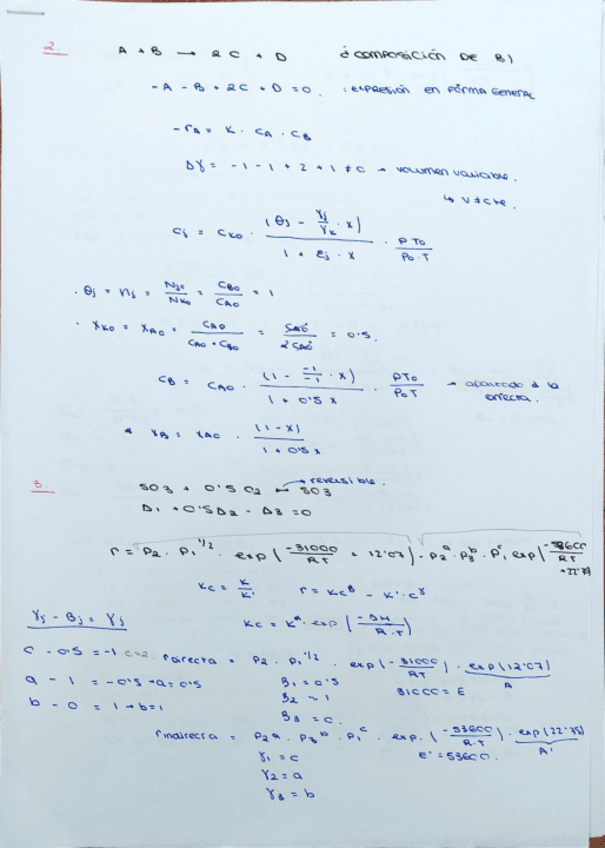 2. A + B → 2C + D ¿composición de B)
-A - B + 2C + D = 0. : expresión en forma general
-rA = K · CA · CB
Δγ = -1 -1 + 2 + 1 ≠ 0 → volumen variable.
↳ V ≠ cte.
Cj = CK0 · (θj - γj/γK · x) / 1 + εj · x · P T0 / P0 · T
· θj = nj = Nj0/NK0 = CB0/CA0 = 1
· XK0 = XA0 = CA0 / CA0 + CB0 = CA0 / 2CA0 = 0'5.
CB = CA0 · (1 - -1/-1 · x) / 1 + 0'5 x · PT0 / P0T → apartado d la correcta.
* XB = XA0 · (1 - x) / 1 + 0'5 x
3. SO3 + 0'5 O2 ↔ SO3 → reversible.
Δ1 + 0'5Δ2 - Δ3 = 0
r = P2 · P1^1/2 · exp(-31000/RT + 12'07) - P2^a · P3^b · P1^c exp(-53600/RT + 22'75)
Kc = K/K' r = KC^B - K' · C^γ
γj - Bj = γj Kc = K^∞ · exp(-ΔH/R·T)
c - 0'5 = -1 c=2 rdirecta = P2 · P1^1/2 · exp(-31000/R·T) · exp(12'07)
a - 1 = -0'5 → a = 0'5 B1 = 0'5 31000 = E A
b - 0 = 1 → b = 1 B2 = 1
B3 = 0.
rindirecta = P2^a · P3^b · P1^c · exp. (-53600/R·T) · exp(22'75)
γ1 = c E' = 53600. A'
γ2 = a
γ3 = b